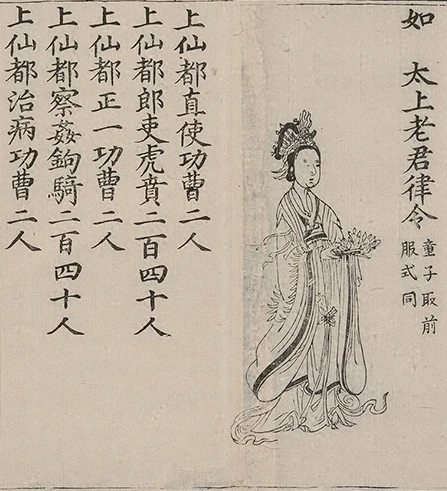 如　太上老君律令
童子取前
服式同
上仙都直使功曹二人
上仙都郎吏虎賁二百四十人
上仙都正一功曹二人
上仙都察姦鉤騎二百四十人
上仙都治病功曹二人